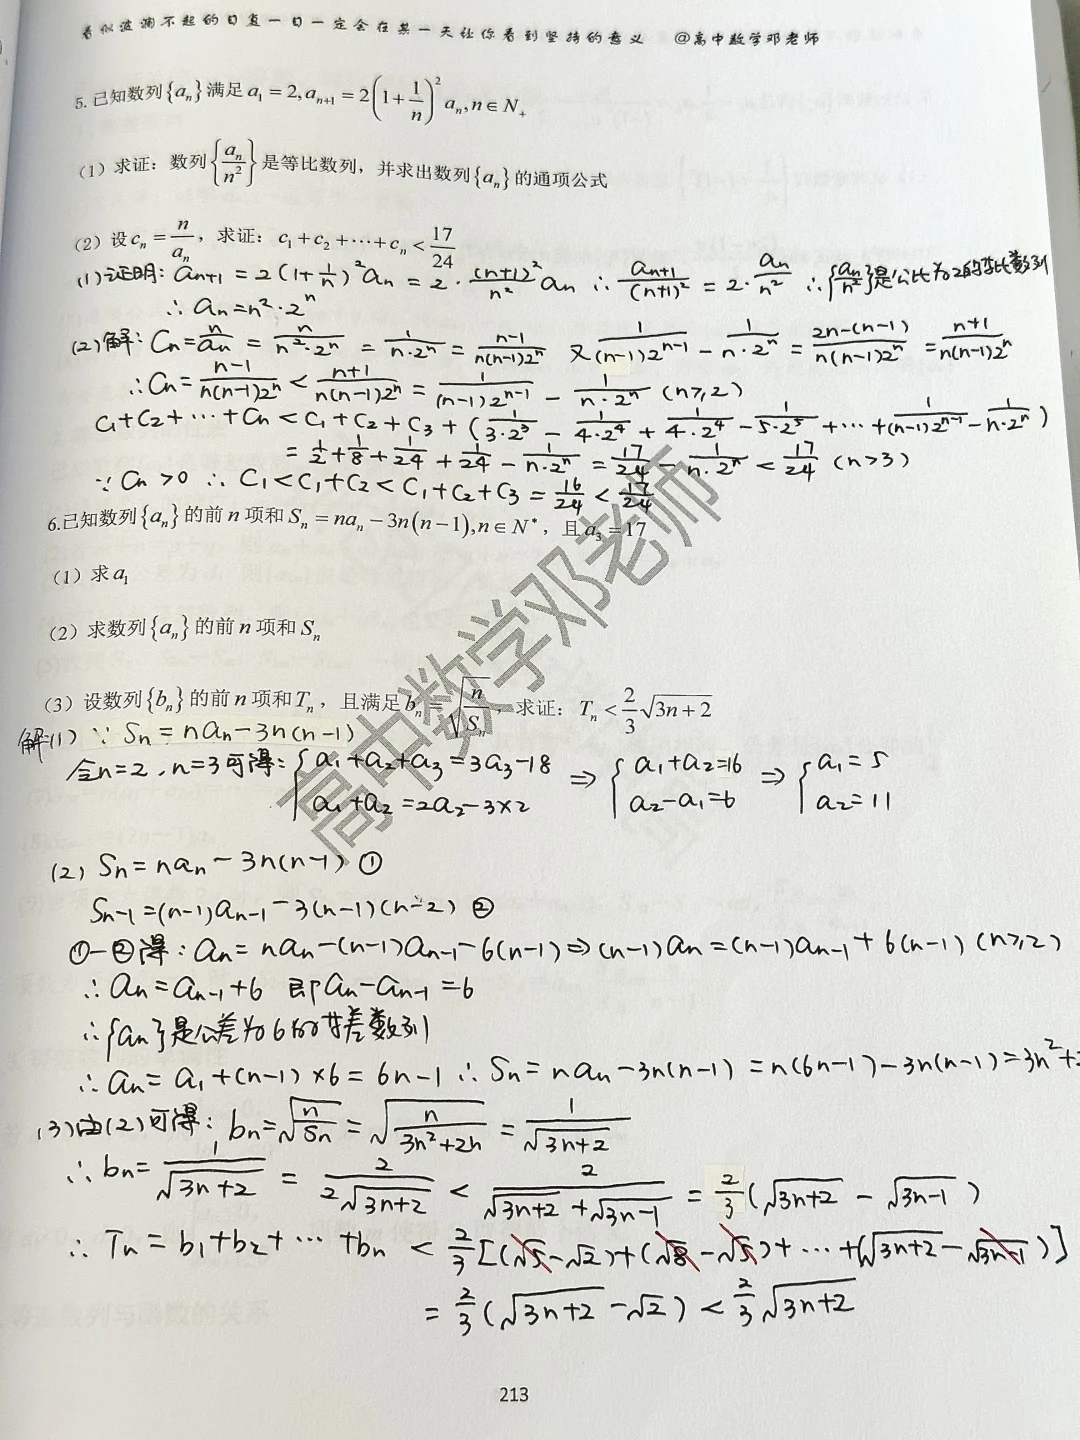 看似波澜不起的日复一日一定会在某一天让你看到坚持的意义 @高中数学邓老师
5.已知数列{aₙ}满足a₁=2,aₙ₊₁=2(1+1/n)²aₙ,n∈N₊
(1)求证：数列{aₙ/n²}是等比数列，并求出数列{aₙ}的通项公式
(2)设cₙ=n/aₙ，求证：c₁+c₂+⋯+cₙ<17/24
(1)证明：aₙ₊₁=2(1+1/n)²aₙ=2·(n+1)²/n² aₙ ∴aₙ₊₁/(n+1)²=2·aₙ/n² ∴{aₙ/n²}是公比为2的等比数列
∴aₙ=n²·2ⁿ
(2)解：Cₙ=n/aₙ=n/(n²·2ⁿ)=1/(n·2ⁿ)=(n-1)/(n(n-1)2ⁿ) 又1/((n-1)2ⁿ⁻¹)-1/(n·2ⁿ)=(2n-(n-1))/(n(n-1)2ⁿ)=(n+1)/(n(n-1)2ⁿ)
∴Cₙ=(n-1)/(n(n-1)2ⁿ)<(n+1)/(n(n-1)2ⁿ)=1/((n-1)2ⁿ⁻¹)-1/(n·2ⁿ) (n≥2)
C₁+C₂+⋯+Cₙ<C₁+C₂+C₃+(1/(3·2³)-1/(4·2⁴)+1/(4·2⁴)-1/(5·2⁵)+⋯+1/((n-1)2ⁿ⁻¹)-1/(n·2ⁿ))
=1/2+1/8+1/24+1/24-1/(n·2ⁿ)=17/24-1/(n·2ⁿ)<17/24 (n>3)
∵Cₙ>0 ∴C₁<C₁+C₂<C₁+C₂+C₃=16/24<17/24
6.已知数列{aₙ}的前n项和Sₙ=naₙ-3n(n-1),n∈N*，且a₃=17
(1)求a₁
(2)求数列{aₙ}的前n项和Sₙ
(3)设数列{bₙ}的前n项和Tₙ，且满足bₙ=√(n/Sₙ)，求证：Tₙ<2/3√(3n+2)
解(1)∵Sₙ=naₙ-3n(n-1)
令n=2,n=3可得：{a₁+a₂+a₃=3a₃-18 ⇒ {a₁+a₂=16 ⇒ {a₁=5
a₁+a₂=2a₂-3×2 a₂-a₁=6 a₂=11
(2) Sₙ=naₙ-3n(n-1)①
Sₙ₋₁=(n-1)aₙ₋₁-3(n-1)(n-2)②
①-②得：aₙ=naₙ-(n-1)aₙ₋₁-6(n-1)⇒(n-1)aₙ=(n-1)aₙ₋₁+6(n-1) (n≥2)
∴aₙ=aₙ₋₁+6 即aₙ-aₙ₋₁=6
∴{aₙ}是公差为6的等差数列
∴aₙ=a₁+(n-1)×6=6n-1 ∴Sₙ=naₙ-3n(n-1)=n(6n-1)-3n(n-1)=3n²+
(3)由(2)可得：bₙ=√(n/Sₙ)=√(n/(3n²+2n))=1/√(3n+2)
∴bₙ=1/√(3n+2)=2/(2√(3n+2))<2/(√(3n+2)+√(3n-1))=2/3(√(3n+2)-√(3n-1))
∴Tₙ=b₁+b₂+⋯+bₙ<2/3[(√5-√2)+(√8-√5)+⋯+(√(3n+2)-√(3n-1))]
=2/3(√(3n+2)-√2)<2/3√(3n+2)
高中数学邓老师
213